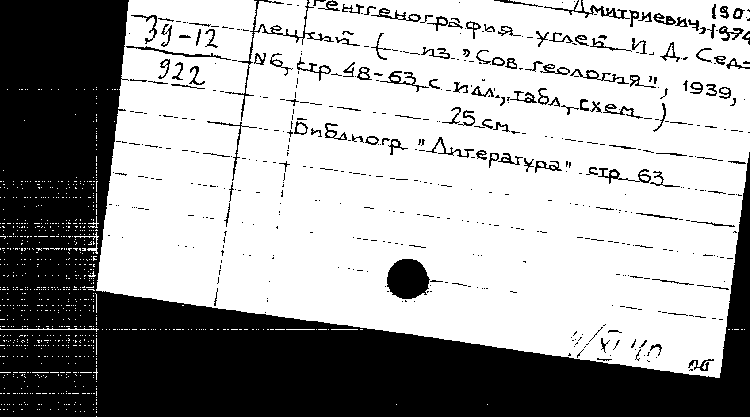 Дмитриевич, 1907
1974
39-12
922
Рентгенография углей. И. Д. Сед=
лецкий ( из "Сов. геология", 1939,
N6, стр 48-63, с илл., табл., схем. )
25 см.
Библиогр "Литература" стр 63
4/XI 40 об